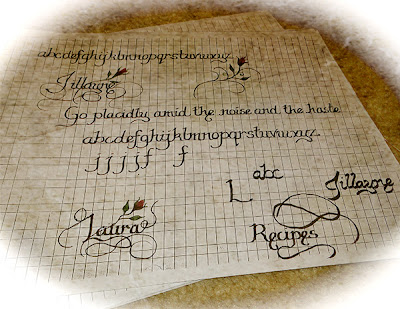 abcdefghijklmnopqrstuvwxyz
Jillayne
Go placidly amid the noise and the haste
abcdefghijklmnopqrstuvwxyz
jjjjf f
L abc
Jillayne
Laura
Recipes